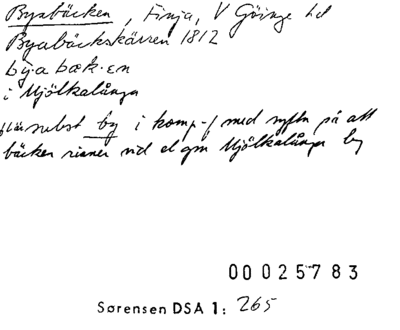 Byabäcken, Finja, V Göinge hd
Byabäckskärren 1812
by·a bæk·en
i Mjölkalånga
subst by i komp-f med syftn på att
bäcken rinner vid el gm Mjölkalånga by
00025783
Sørensen DSA 1: 265